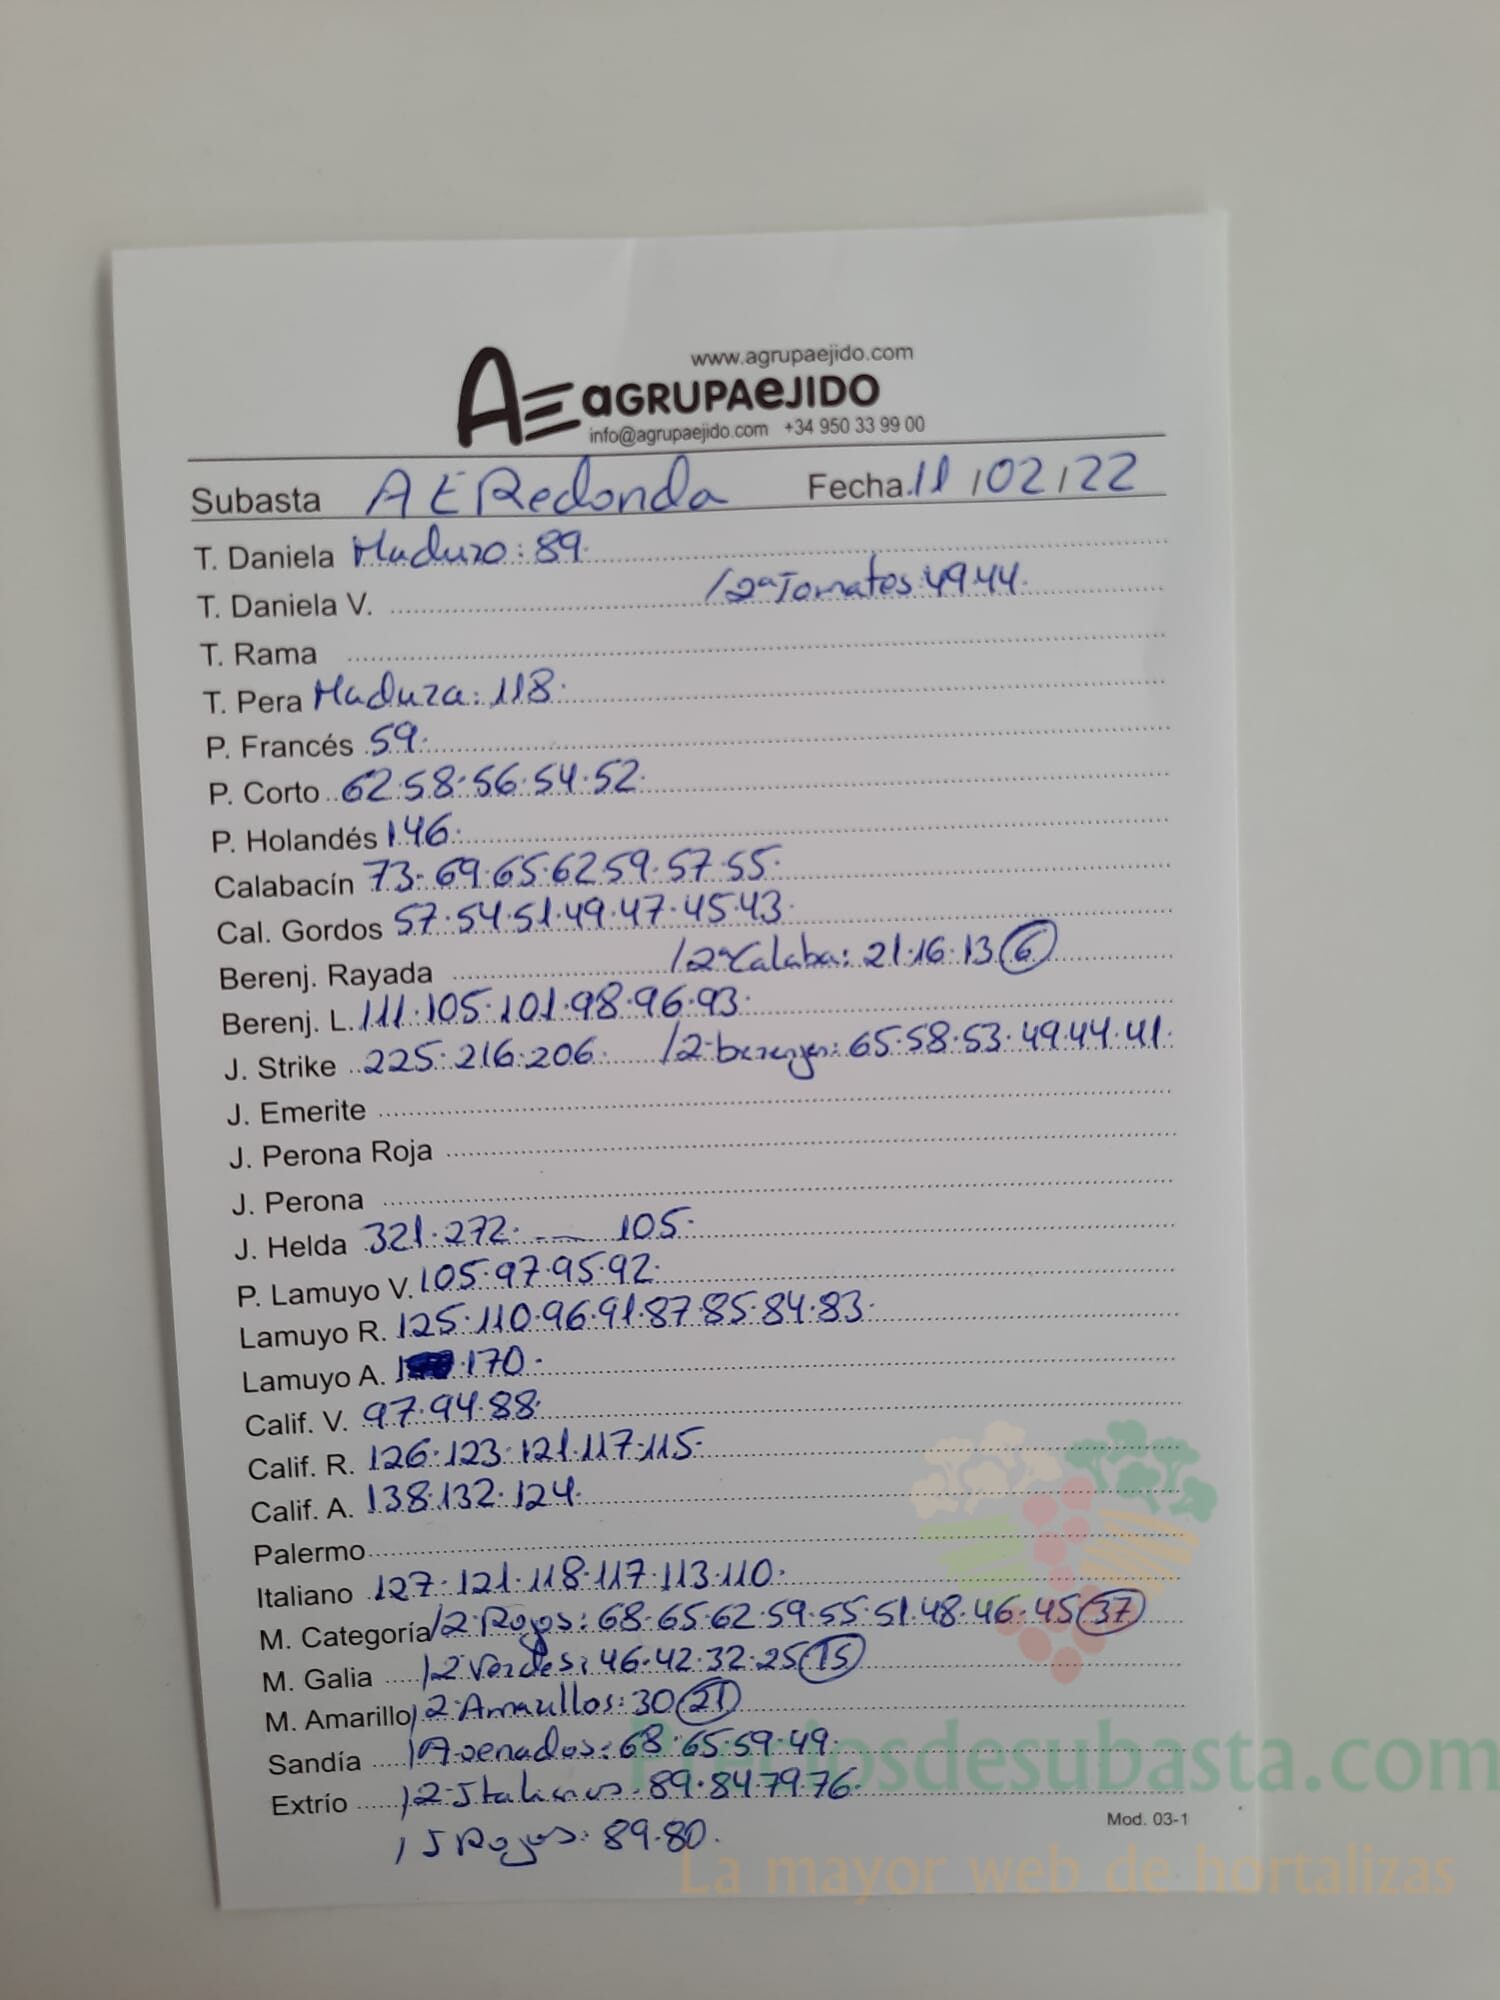 www.agrupaejido.com
AE aGRUPAeJIDO
info@agrupaejido.com +34 950 33 99 00
Subasta AE Redonda Fecha 11/02/22
T. Daniela Maduro: 89.
T. Daniela V. /2ª Tomates 49.44.
T. Rama
T. Pera Madura: 118.
P. Francés 59.
P. Corto 62.58.56.54.52.
P. Holandés 146.
Calabacín 73.69.65.62.59.57.55.
Cal. Gordos 57.54.51.49.47.45.43.
Berenj. Rayada /2ª Calaba: 21.16.13 6
Berenj. L. 111.105.101.98.96.93.
J. Strike 225.216.206. /2 berenjen: 65.58.53.49.44.41.
J. Emerite
J. Perona Roja
J. Perona
J. Helda 321.272. — 105.
P. Lamuyo V. 105.97.95.92.
Lamuyo R. 125.110.96.91.87.85.84.83.
Lamuyo A. 170.
Calif. V. 97.94.88.
Calif. R. 126.123.121.117.115.
Calif. A. 138.132.124.
Palermo
Italiano 127.121.118.117.113.110.
M. Categoría /2 Rojos: 68.65.62.59.55.51.48.46.45 37
M. Galia /2 Verdes: 46.42.32.25 15
M. Amarillo /2 Amarillos: 30 21
Sandía /Asenados: 68.65.59.49.
Extrío /2 Italianos: 89.84.79.76.
/J Rojos: 89.80.
Mod. 03-1
Preciosdesubasta.com
La mayor web de hortalizas